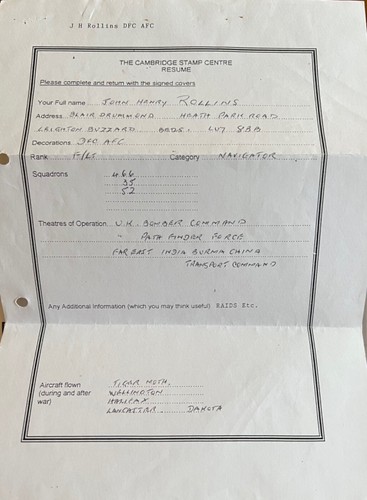 J H Rollins DFC AFC
THE CAMBRIDGE STAMP CENTRE
RESUME
Please complete and return with the signed covers
Your Full name JOHN HENRY ROLLINS
Address BLAIR DRUMMOND HEATH PARK ROAD
LEIGHTON BUZZARD BEDS. LU7 8BB
Decorations DFC AFC
Rank F/Lt Category NAVIGATOR
Squadrons 466
35
52
Theatres of Operation U.K. BOMBER COMMAND
" PATH FINDER FORCE
FAR EAST INDIA BURMA CHINA
TRANSPORT COMMAND
Any Additional Information (which you may think useful) RAIDS Etc.
Aircraft flown TIGER MOTH.
(during and after WELLINGTON
war) HALIFAX
LANCASTER DAKOTA